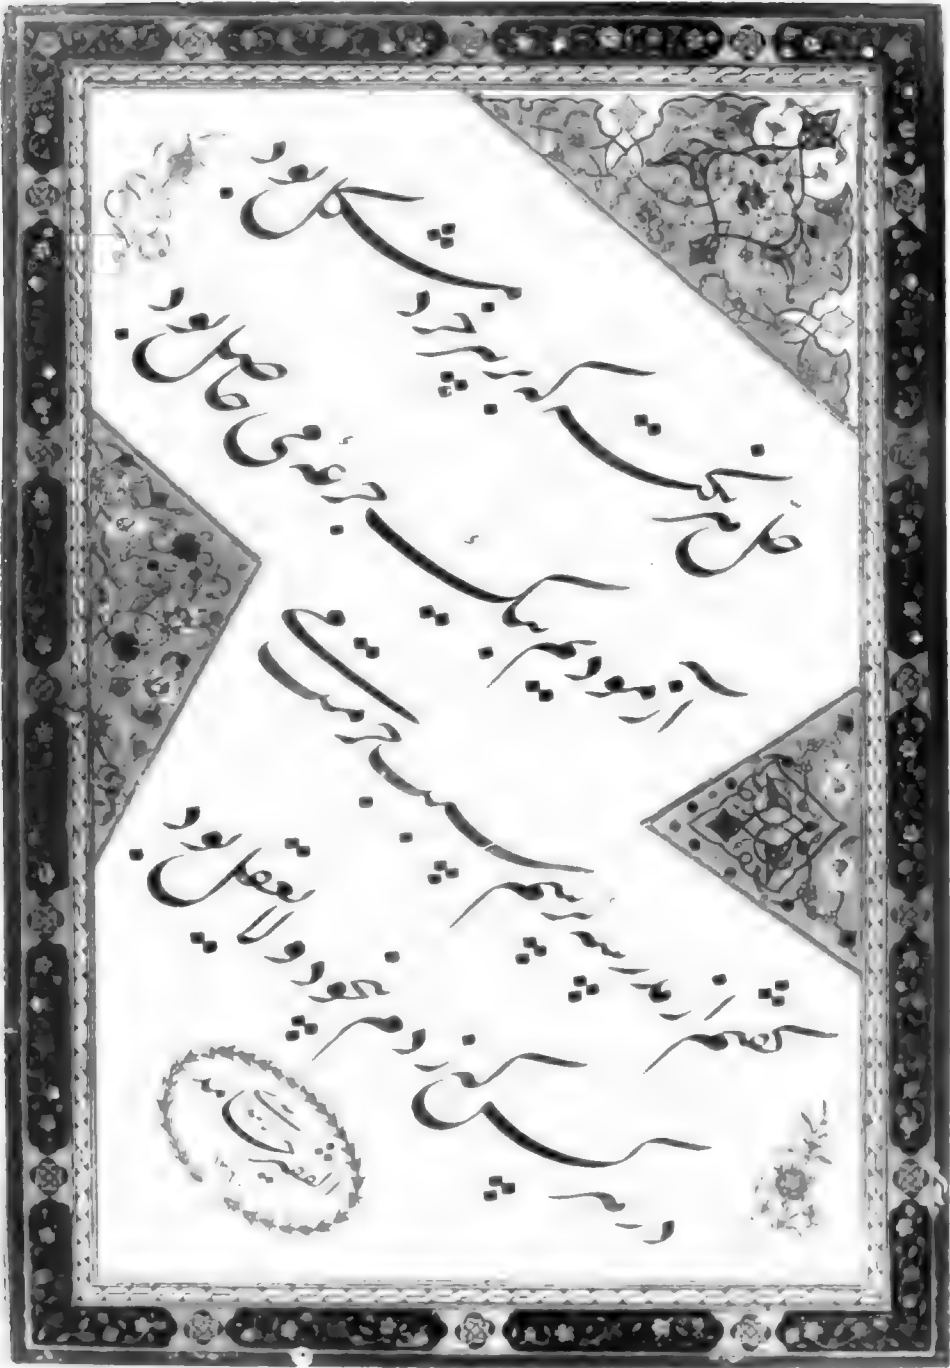 حل هر نکته که بر پیر خرد مشکل بود
آزمودیم به یک جرعه می حاصل بود
گفتم از مدرسه پرسم سبب حرمت می
در هر کس که زدم بیخود و لایعقل بود
الفقیر